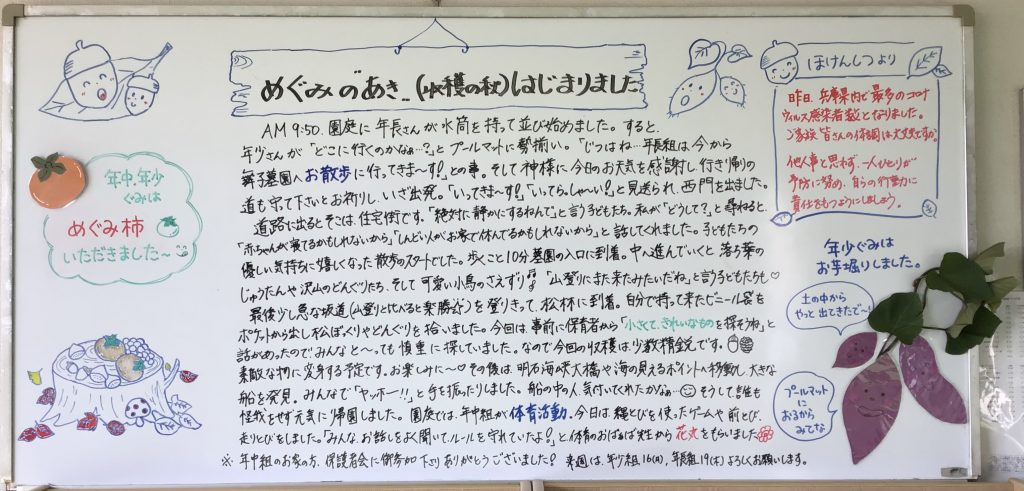 めぐみのあき_(収穫の秋)はじまりました
AM 9:50. 園庭に年長さんが水筒を持って並び始めました。すると、
年少さんが「どこに行くのかなぁ…?」とプールマットに勢揃い。「じつはね…年長組は、今から
舞子墓園へお散歩に行ってきまーす!」との事。そして神様に今日のお天気を感謝し、行き帰りの
道も守って下さいとお祈りし、いざ出発。「いってきまーす!」「いってらっしゃーい!」と見送られ、西門を出ました。
道路に出るとそこは、住宅街です。「絶対に静かにするねんで」と言う子どもたち。私が「どうして?」と尋ねると、
「赤ちゃんが寝てるかもしれないから」「しんどい人がお家で休んでるかもしれないから」と話してくれました。子どもたちの
優しい気持ちに嬉しくなった散歩のスタートでした。歩くこと10分墓園の入口に到着。中へ進んでいくと落ち葉の
じゅうたんや沢山のどんぐりたち、そして可愛い小鳥のさえずり♪「山登りにまた来たみたいだね」と言う子どもたちも♡
最後少し急な坂道(山登りと比べると楽勝☆)を登りきって、松林に到着。自分で持って来たビニール袋を
ポケットから出し松ぼっくりやどんぐりを拾いました。今回は、事前に保育者から「小さくて、きれいなものを探そうね」と
話があったのでみんなと〜っても慎重に探していました。なので今回の収穫は少数精鋭です。
素敵な物に変身する予定です。お楽しみに〜♡その後は、明石海峡大橋や海の見えるポイントへ移動し、大きな
船を発見。みんなで「ヤッホー!!」と手を振ったりしました。船の中の人気付いてくれたかなぁ…そうして誰も
怪我をせず元気に帰園しました。園庭では、年中組が体育活動。今日は縄とびを使ったゲームや前とび、
走りとびをしました。「みんな、お話しをよく聞いて、ルールを守れていたよ!」と体育のおばば先生から花丸をもらいました
※年中組のお家の方、保護者会に御参加下さりありがとうございました! 来週は、年少組16(月)、年長組19(木)よろしくお願いします。
年中、年少
ぐみは
めぐみ柿
いただきました〜
ほけんしつより
昨日、兵庫県内で最多のコロナ
ウィルス感染者数となりました。
ご家族皆さんの体調は大丈夫ですか。
他人事と思わず、一人ひとりが
予防に努め、自らの行動に
責任をもつようにしましょう。
年少ぐみは
お芋掘りしました。
土の中から
やっと出てきたで〜!
プールマット
に
おるから
みてな